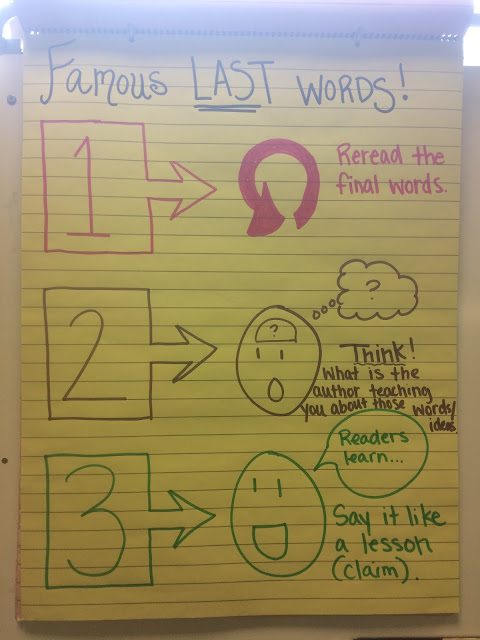 Famous LAST WORDS!
1
Reread the
final words.
2
?
?
Think!
What is the
author teaching
you about those words/
ideas.
3
Readers
learn...
Say it like
a lesson
(claim).